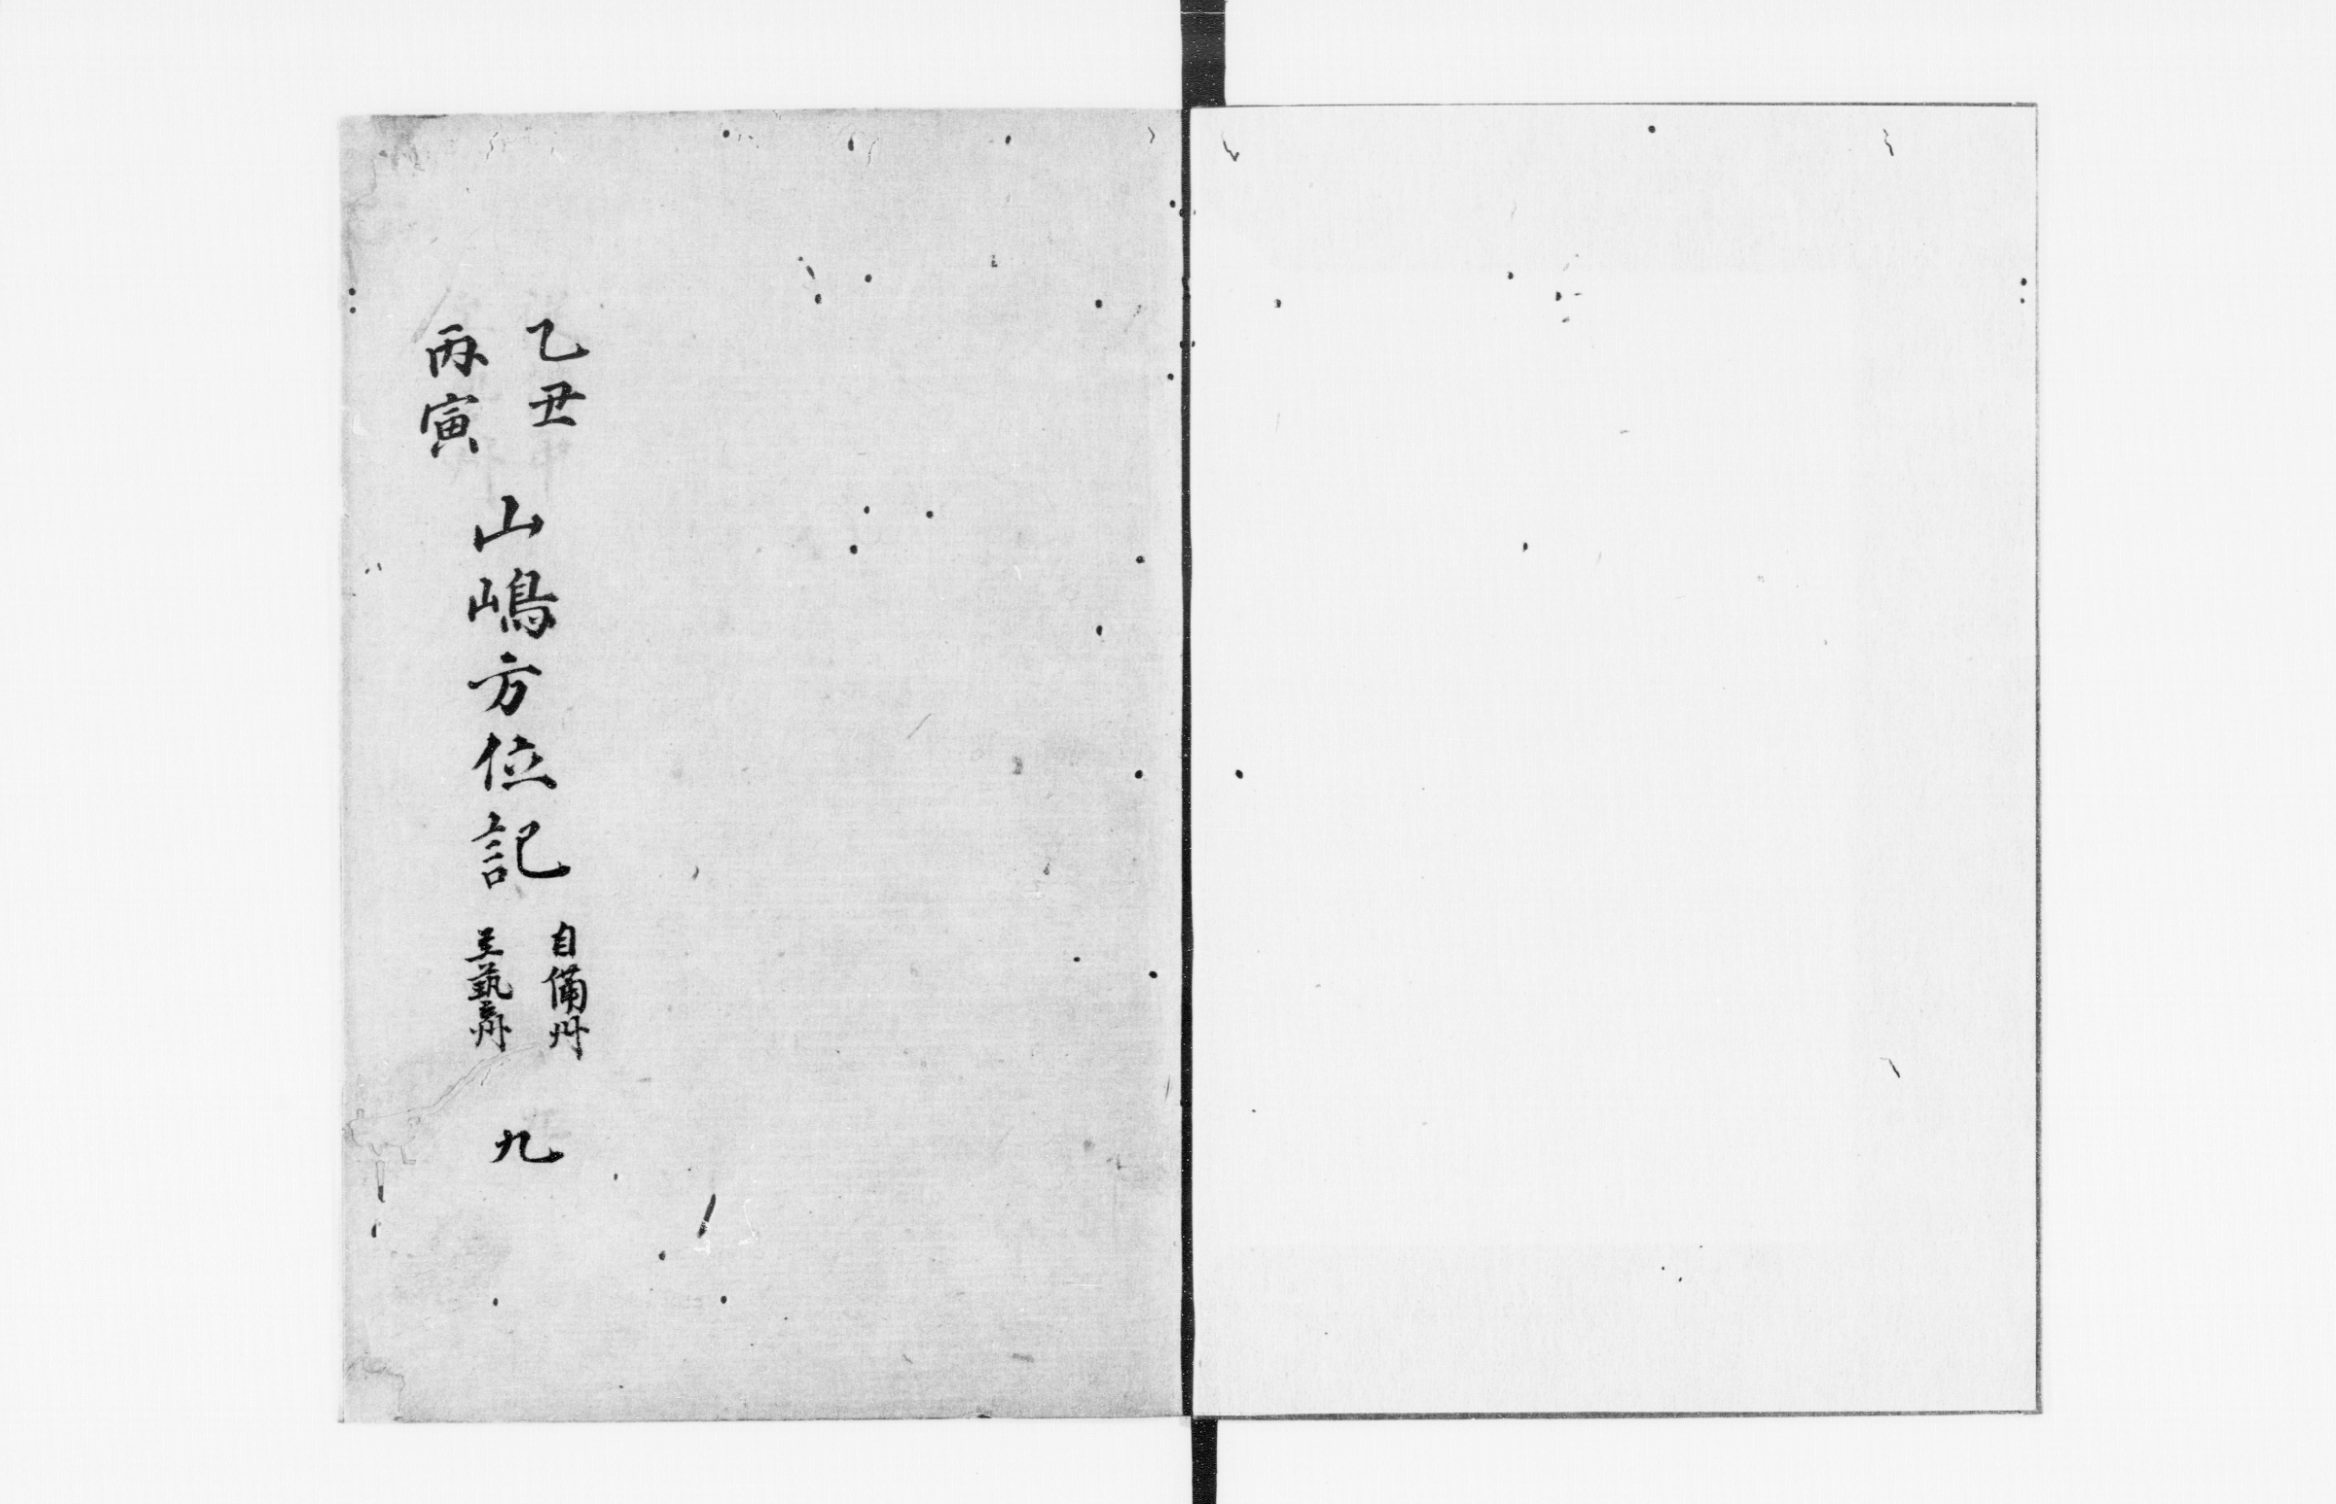 乙丑
丙寅
山嶋方位記
自備州
至藝州
九